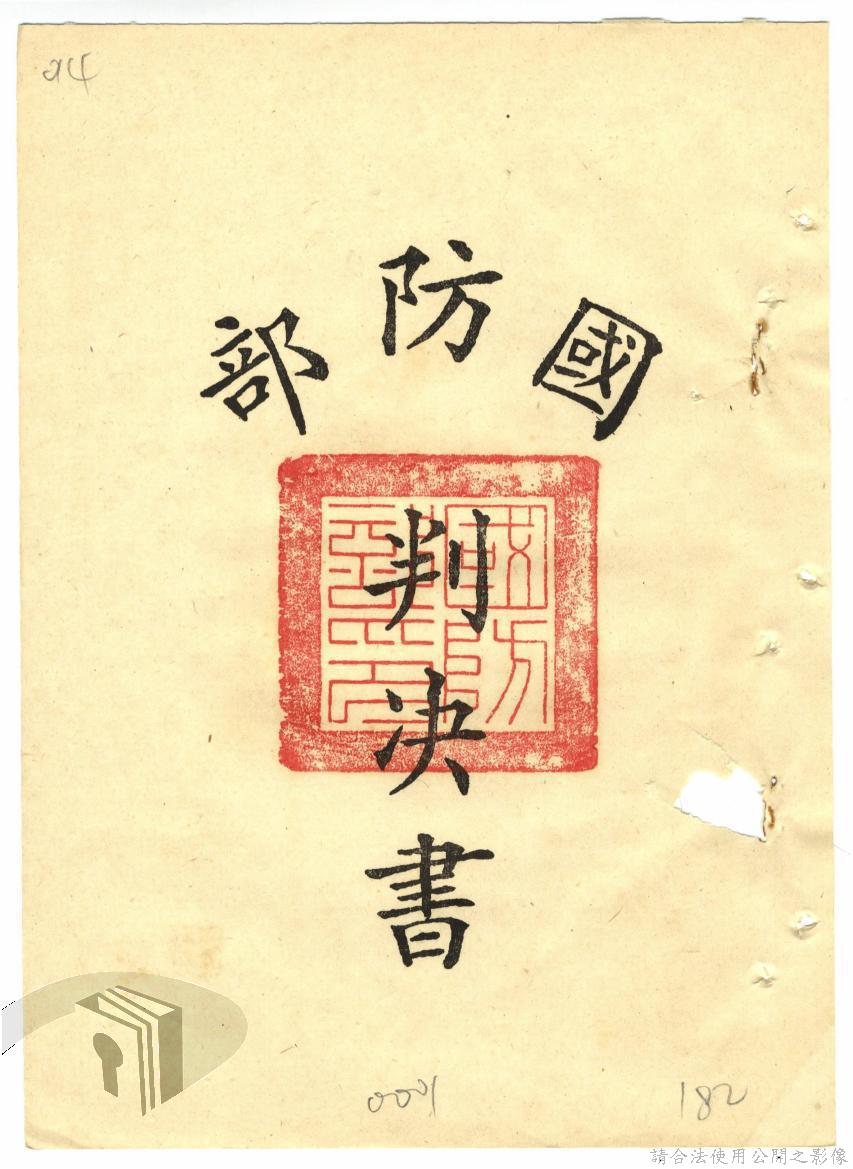 94
國防部
判決書
國防部印
001
182
請合法使用公開之影像